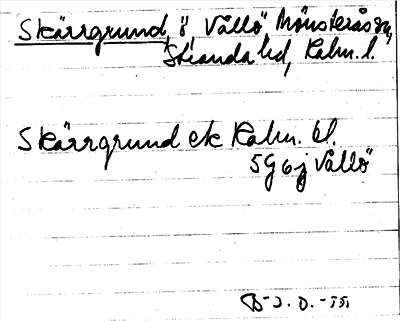 Skärrgrund, ö, Vållö Mönsterås sn,
Stranda hd, Kalm. l.
Skärrgrund ek Kalm. bl.
5G6j Vållö